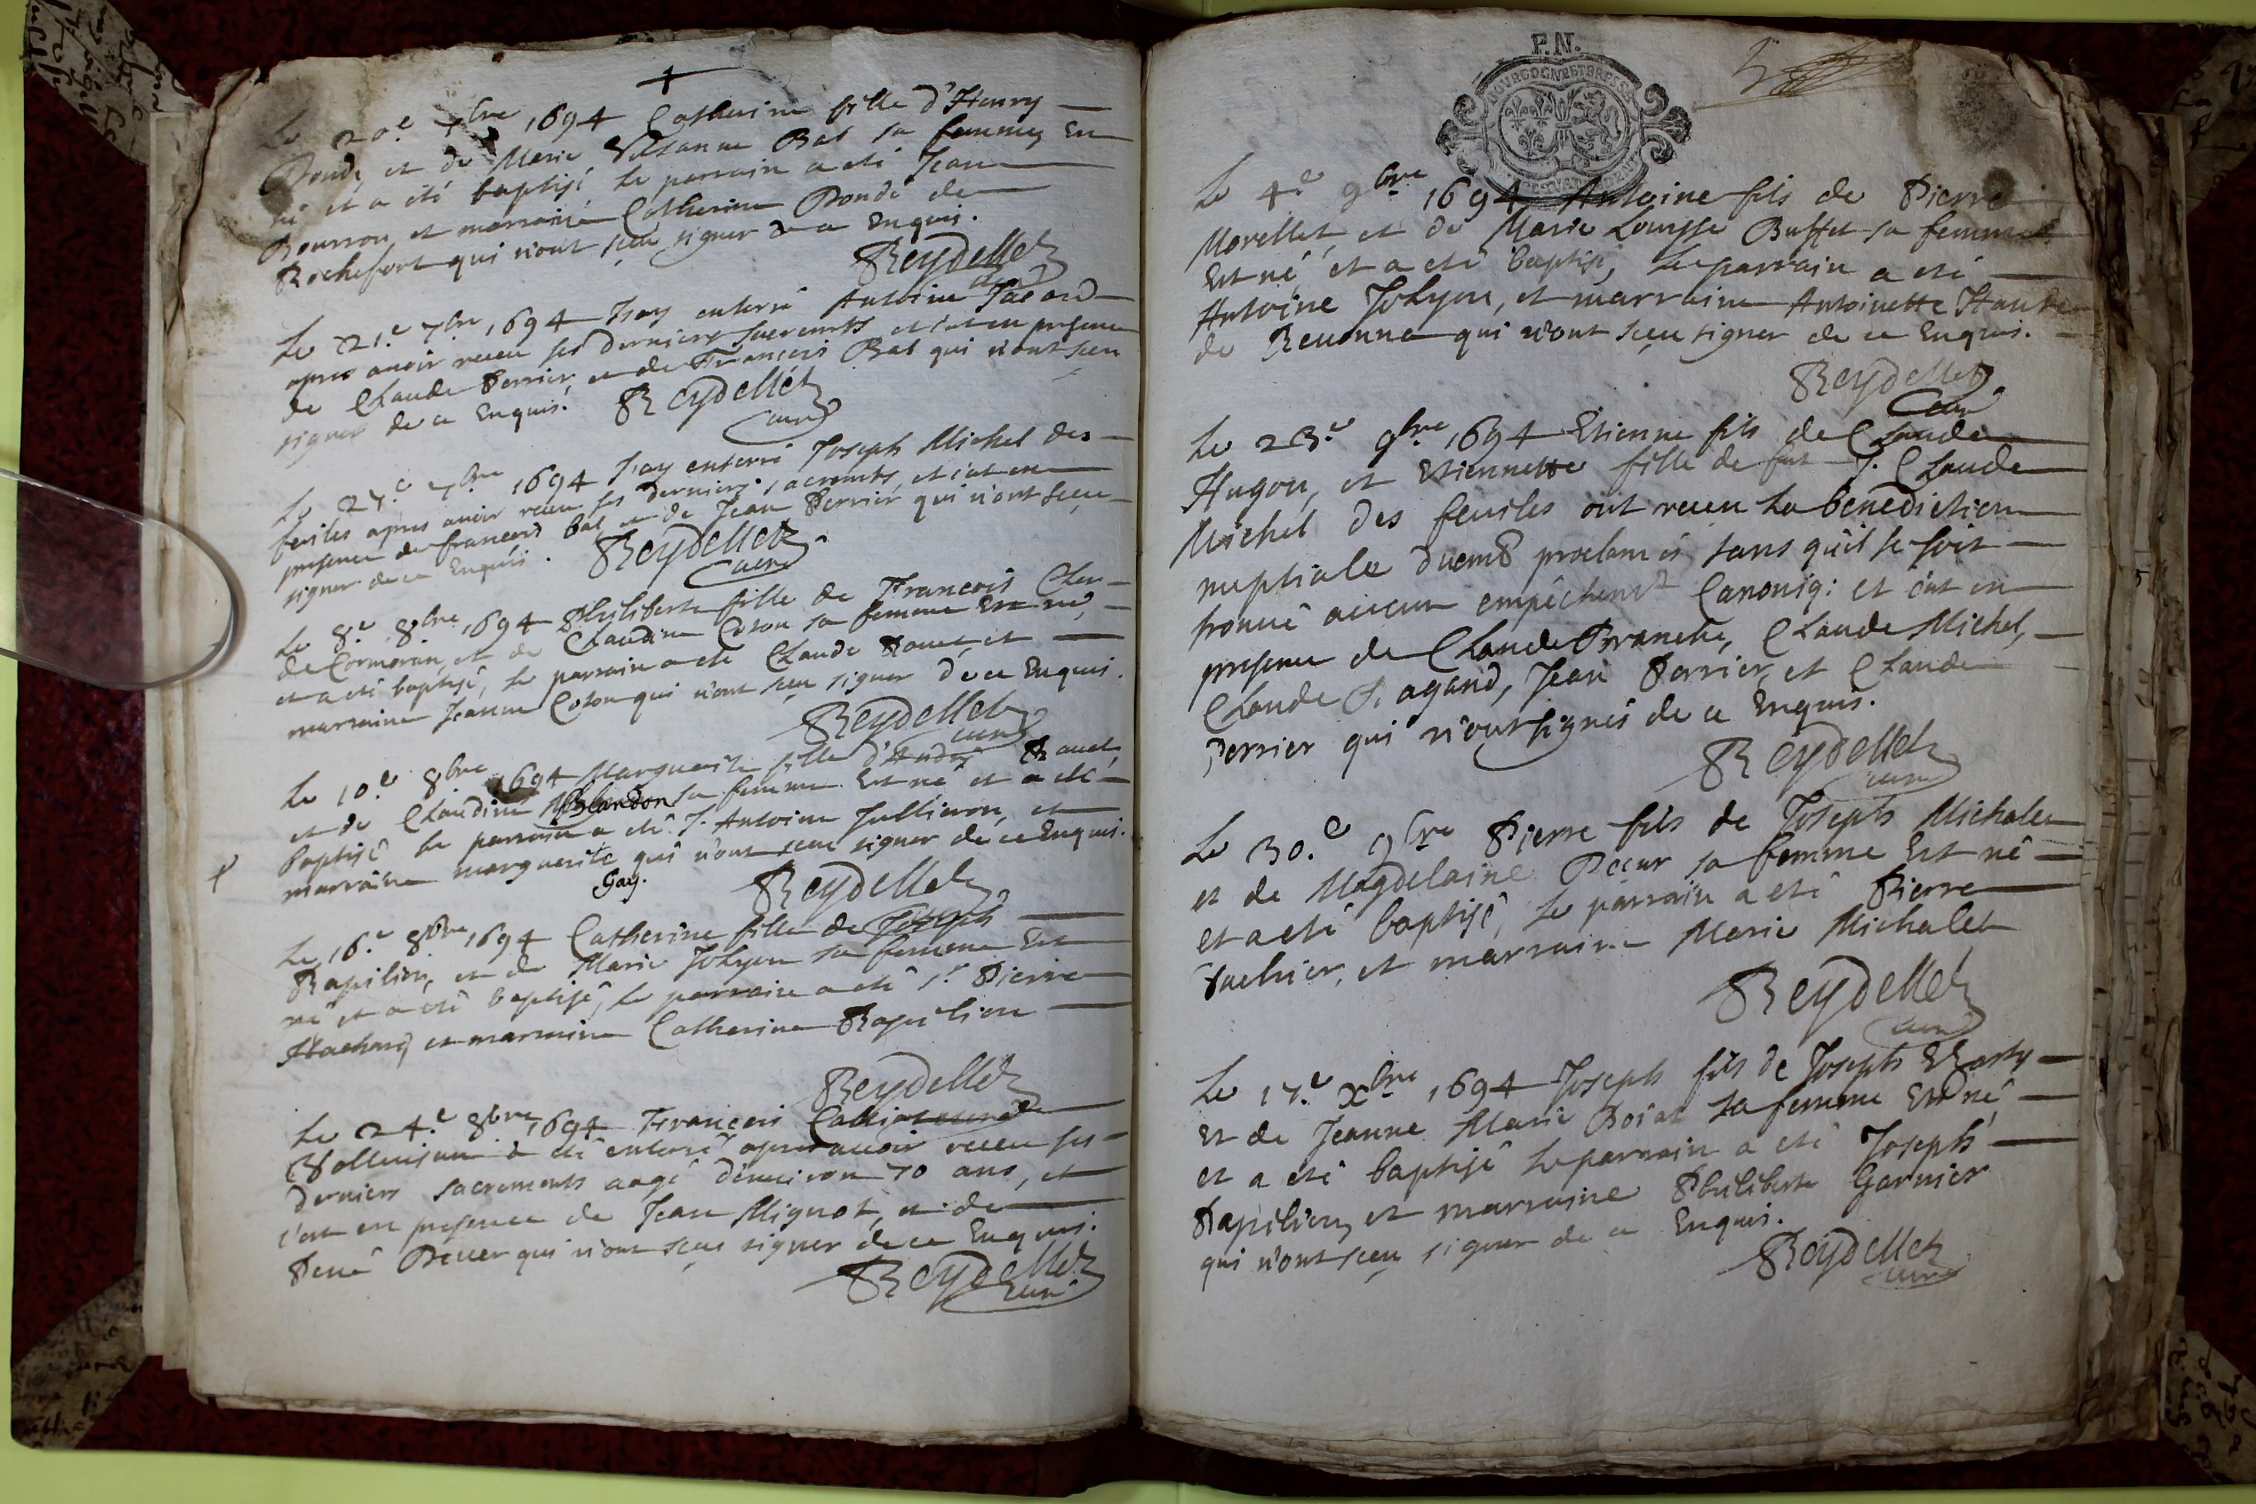 Le 20.e 7bre 1694 Catherine fille d'Henry
Dondé, et de Marie Susanne Bal sa femme, Est
né et a eté baptisé le parrain a eté Jean
Bourron, et marraine Catherine Dondé de
Rochefort qui n'ont sçeu signer de ce Enquis.
Reydellet
curé
Le 21.e 7bre 1694 J'ay enterré Antoine
apres avoir receu ses derniers sacremts, et c'at en presence
de Claude Perrier, et de François Bal qui n'ont sçeu
signer de ce Enquis. Reydellet
curé
Le 27.e 7bre 1694 J'ay enterré Joseph Michel des
feuiles apres avoir receu ses derniers sacremts, et c'at en
presence de françois bal et de Jean Perrier qui n'ont sçeu
signer de ce Enquis. Reydellet
curé
Le 8.e 8bre 1694 Philiberte fille de François
de Cormoran, et de Claudine Coton sa femme Est né,
et a eté baptisé, le parrain a eté Claude et
marraine Jeanne Coton qui n'ont sçeu signer de ce Enquis.
Reydellet
curé
Le 10.e 8bre 1694 Marguerite fille d'André
et de Claudine Blandon sa femme Est né et a eté
baptisé le parrain a eté J. Antoine Jullieron, et
marraine marguerite qui n'ont sceu signer de ce Enquis.
Gay. Reydellet
curé
Le 16.e 8bre 1694 Catherine fille de Joseph
Rapilion, et de Marie Jolyon sa femme Est
né et a eté baptisé, le parrain a eté Sr Pierre
et marraine Catherine Rapilion
Reydellet
Le 24.e 8bre 1694 François
a eté enterré apres avoir receu ses
derniers sacrements aagé d'environ 70 ans, et
c'at en presence de Jean Mignot, et de
René qui n'ont sçeu signer de ce Enquis.
Reydellet
curé
P.N.
BOURGOGNE ET BRESSE
5
Le 4.e 9bre 1694 Antoine fils de Pierre
Morellet, et de Marie Louysse Buffet sa femme
Est né, et a eté baptisé, le parrain a eté
Antoine Jolyon, et marraine Antoinette
de Reuonna qui n'ont sçeu signer de ce Enquis.
Reydellet
curé
Le 23.e 9bre 1694 Etienne fils de Claude
Hugon, et Etiennette fille de fut J. Claude
Michel des feuiles ont receu la benediction
nuptiale duemt proclamés sans qu'il se soit
trouvé aucun empêchemt Canoniq: et c'at en
presence de Claude Branche, Claude Michel,
Claude Ragand, Jean Perrier, et Claude
Perrier qui n'ont signés de ce Enquis.
Reydellet
curé
Le 30.e 9bre Pierre fils de Joseph Michalet
et de Magdelaine Decur sa femme Est né
et a eté baptisé, le parrain a eté Pierre
et marraine Marie Michalet
Reydellet
curé
Le 17.e Xbre 1694 Joseph fils de Joseph
et de Jeanne Marie Boiat sa femme Est né,
et a eté baptisé le parrain a eté Joseph
Rapilion, et marraine Philiberte Garnier
qui n'ont sçeu signer de ce Enquis.
Reydellet
curé